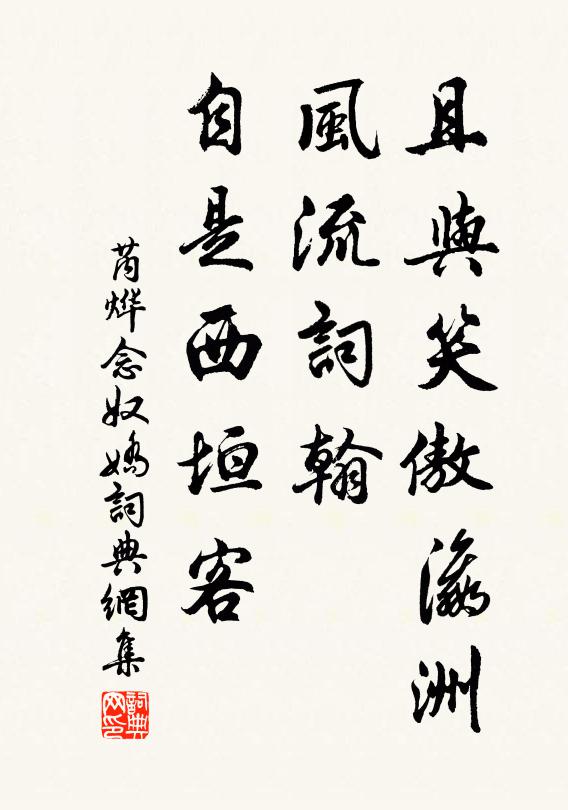 且與笑傲瀛洲
風流詞翰
自是西垣客
芮烨念奴嬌詞典網集
詞典网印